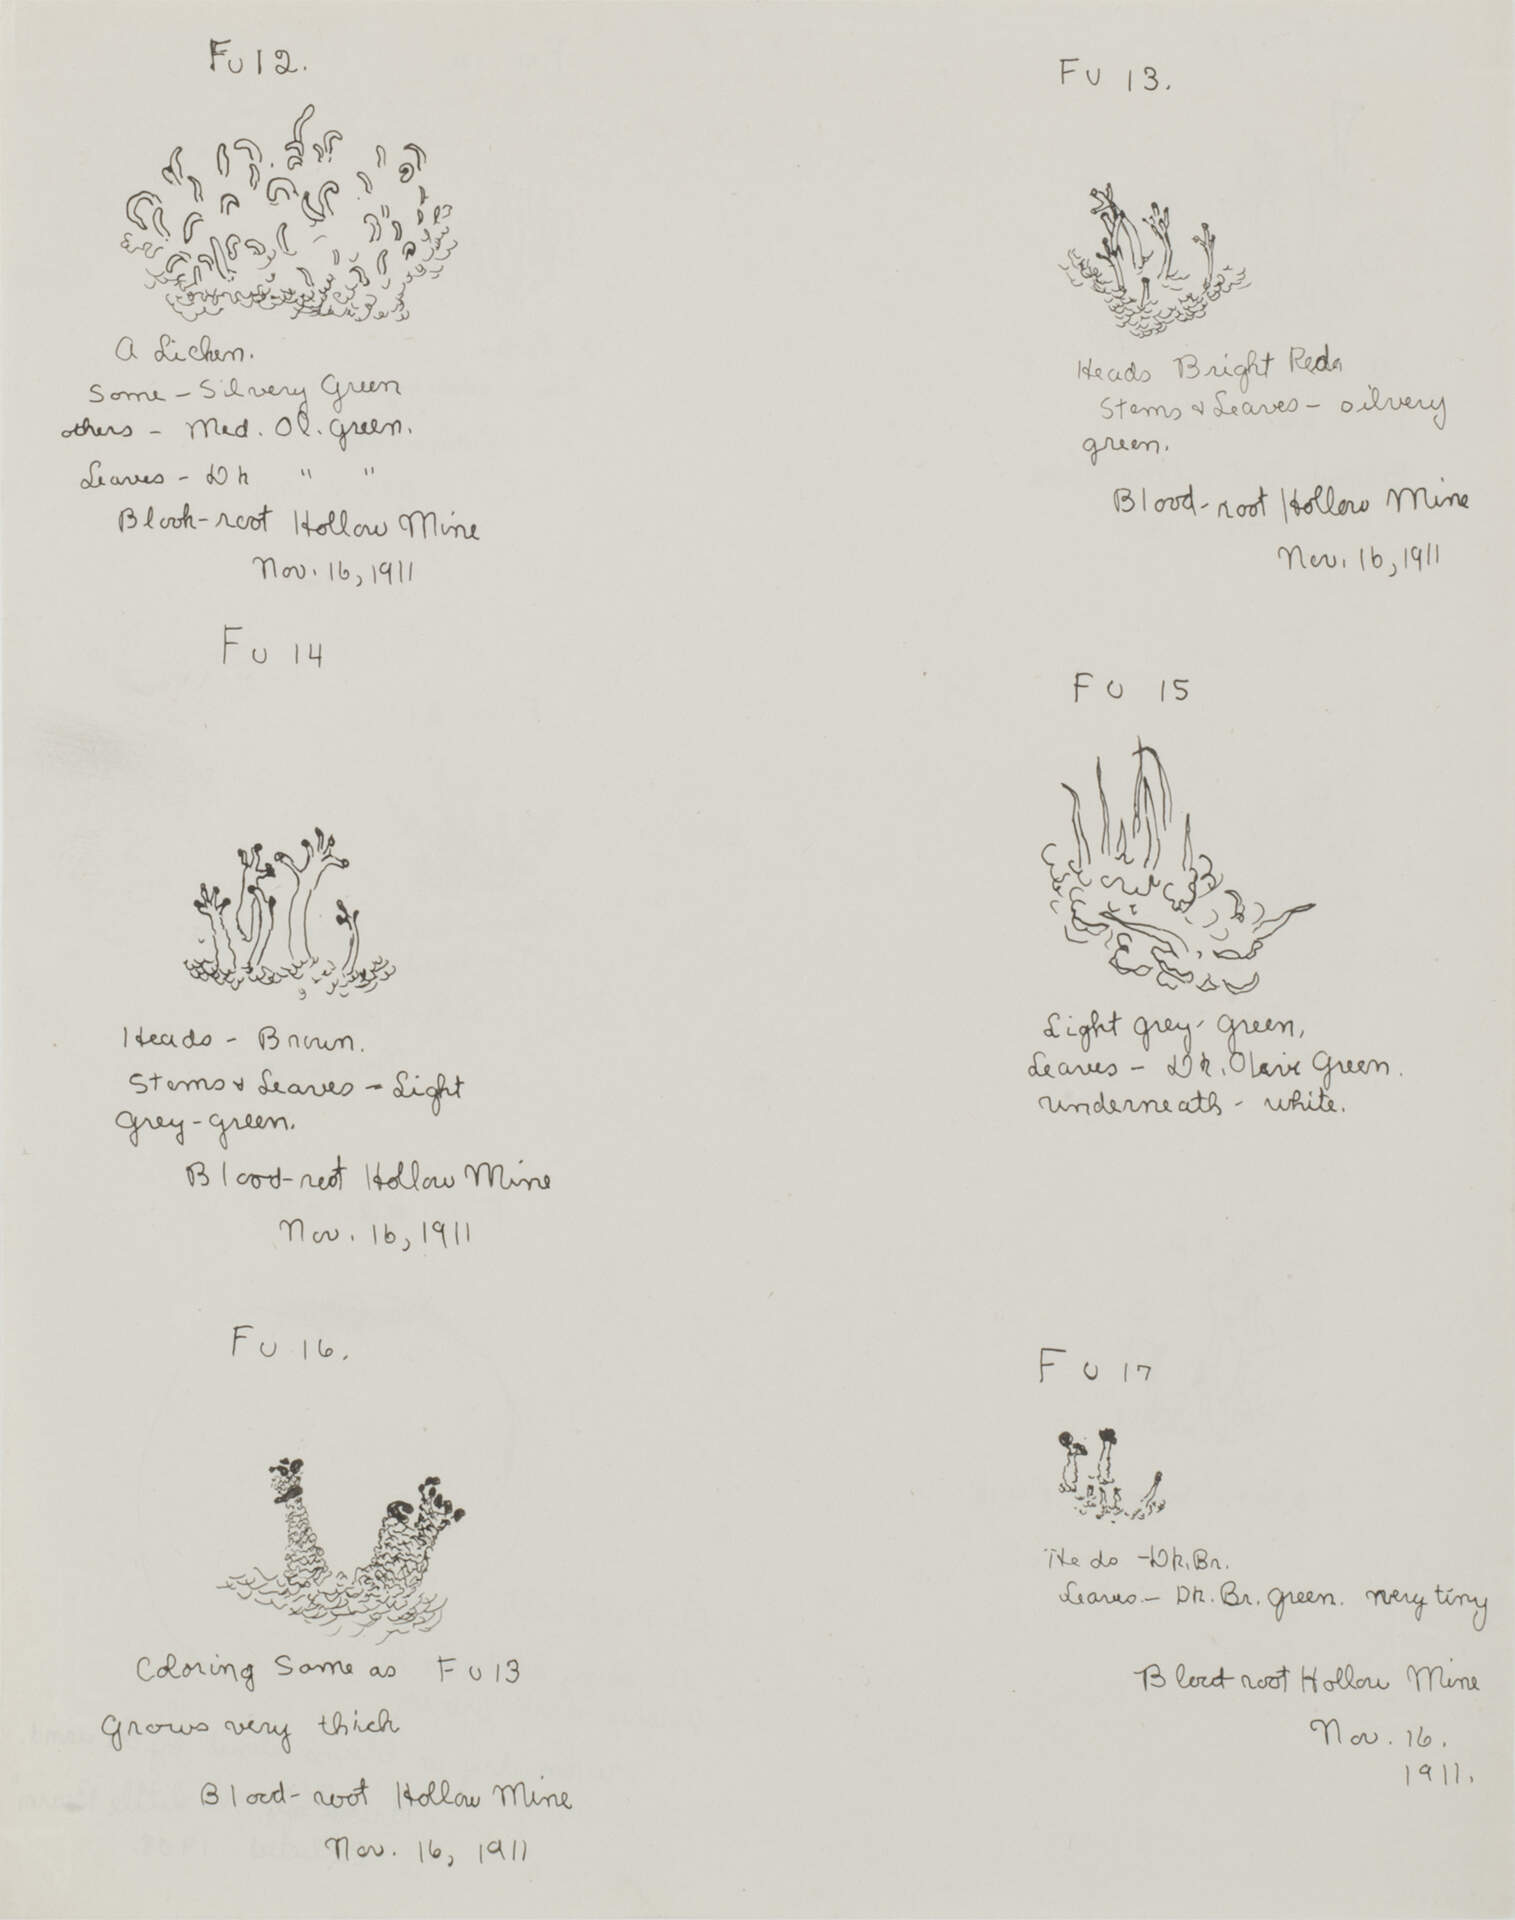 Fu 12.
A Lichen.
Some - Silvery Green
others - Med. Ol. Green.
Leaves - Dk " "
Blook-root Hollow Mine
Nov. 16, 1911
Fu 13.
Heads Bright Red
Stems & Leaves - silvery
green.
Blood-root Hollow Mine
Nov. 16, 1911
Fu 14
Heads - Brown.
Stems & Leaves - Light
Grey-green.
Blood-root Hollow Mine
Nov. 16, 1911
Fu 15
Light grey-green,
Leaves - Dk. Olive Green.
underneath - white.
Fu 16.
Coloring Same as Fu 13
Grows very thick
Blood-root Hollow Mine
Nov. 16, 1911
Fu 17
Heds - Dk. Br.
Leaves - Dk. Br. Green. very tiny
Blood root Hollow Mine
Nov. 16.
1911.